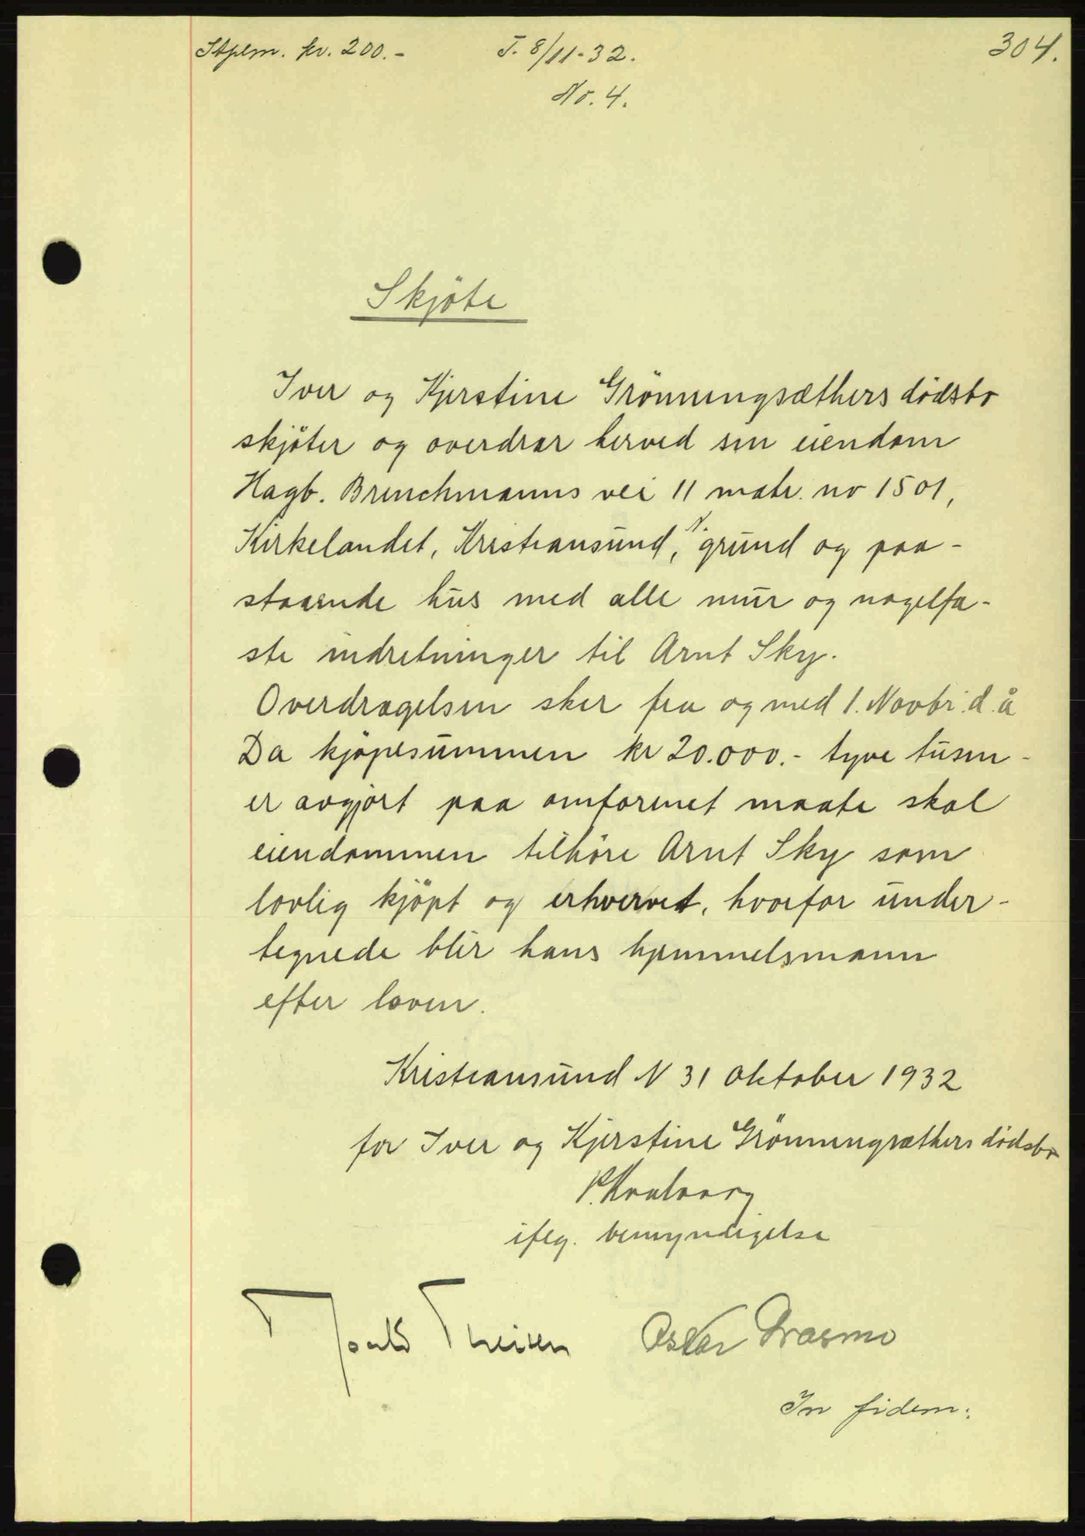 Stplm. kr. 200.-
T. 8/11-32.
304.
No. 4.
Skjöte
Iver og Kjerstine Grönningsæthers dödsbo
skjöter og overdrar herved sin eiendom
Hagb. Brinchmanns vei 11 matr. no 1501,
Kirkelandet, Kristiansund, N. grund og paa-
staaende hus med alle mur og nagelfa-
ste indretninger til Arnt Sky.
Overdragelsen sker fra og med 1. Novbr. d. å
Da kjöpesummen kr 20.000.- tyve tusen -
er avgjort paa omforenet maate skal
eiendommen tilhöre Arnt Sky som
lovlig kjöpt og erhvervet, hvorfor under-
tegnede blir hans hjemmelsmann
efter loven.
Kristiansund N 31 oktober 1932
for Iver og Kjerstine Grönningsæthers dödsbo
iflg. bemyndigelse
Oskar
In fidem: